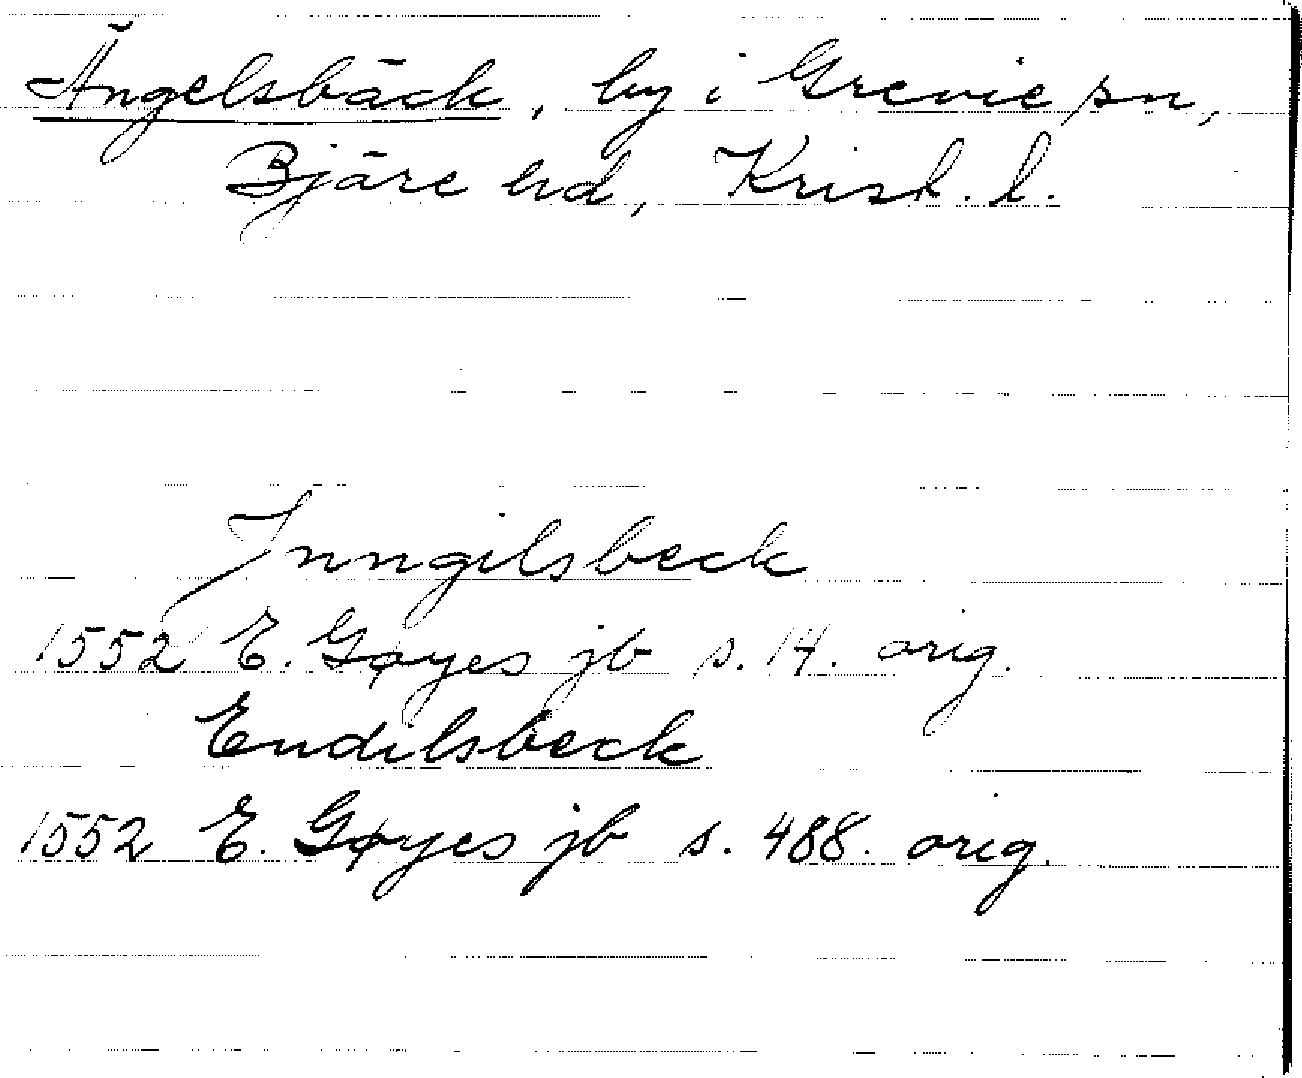 Ängelsbäck, by i Grevie sn,
Bjäre hd, Krist. l.
Inngilsbeck
1552 E. Gøyes jb s. 14. orig.
Endilsbeck
1552 E. Gøyes jb s. 488. orig.